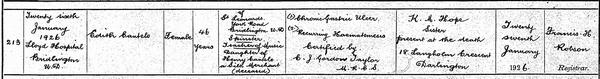 213
Twenty sixth
January
1926
Lloyd Hospital
Bridlington
U.D.
Edith Cautels
Female
46
Years
St
Leonards
York Road
Bridlington U.D.
Spinster
Teacher of Music
Daughter of
Henry Cautels
a Silk Merchant
(deceased)
(1) Chronic Gastric Ulcer
(2)
Recurring Haematemesis
Certified by
C. J. Gordon Taylor
M.R.C.S.
K. M. Hope
Sister
present at the death
18 Langholm Crescent
Darlington
Twenty
seventh
January
1926.
Francis H.
Robson
Registrar.